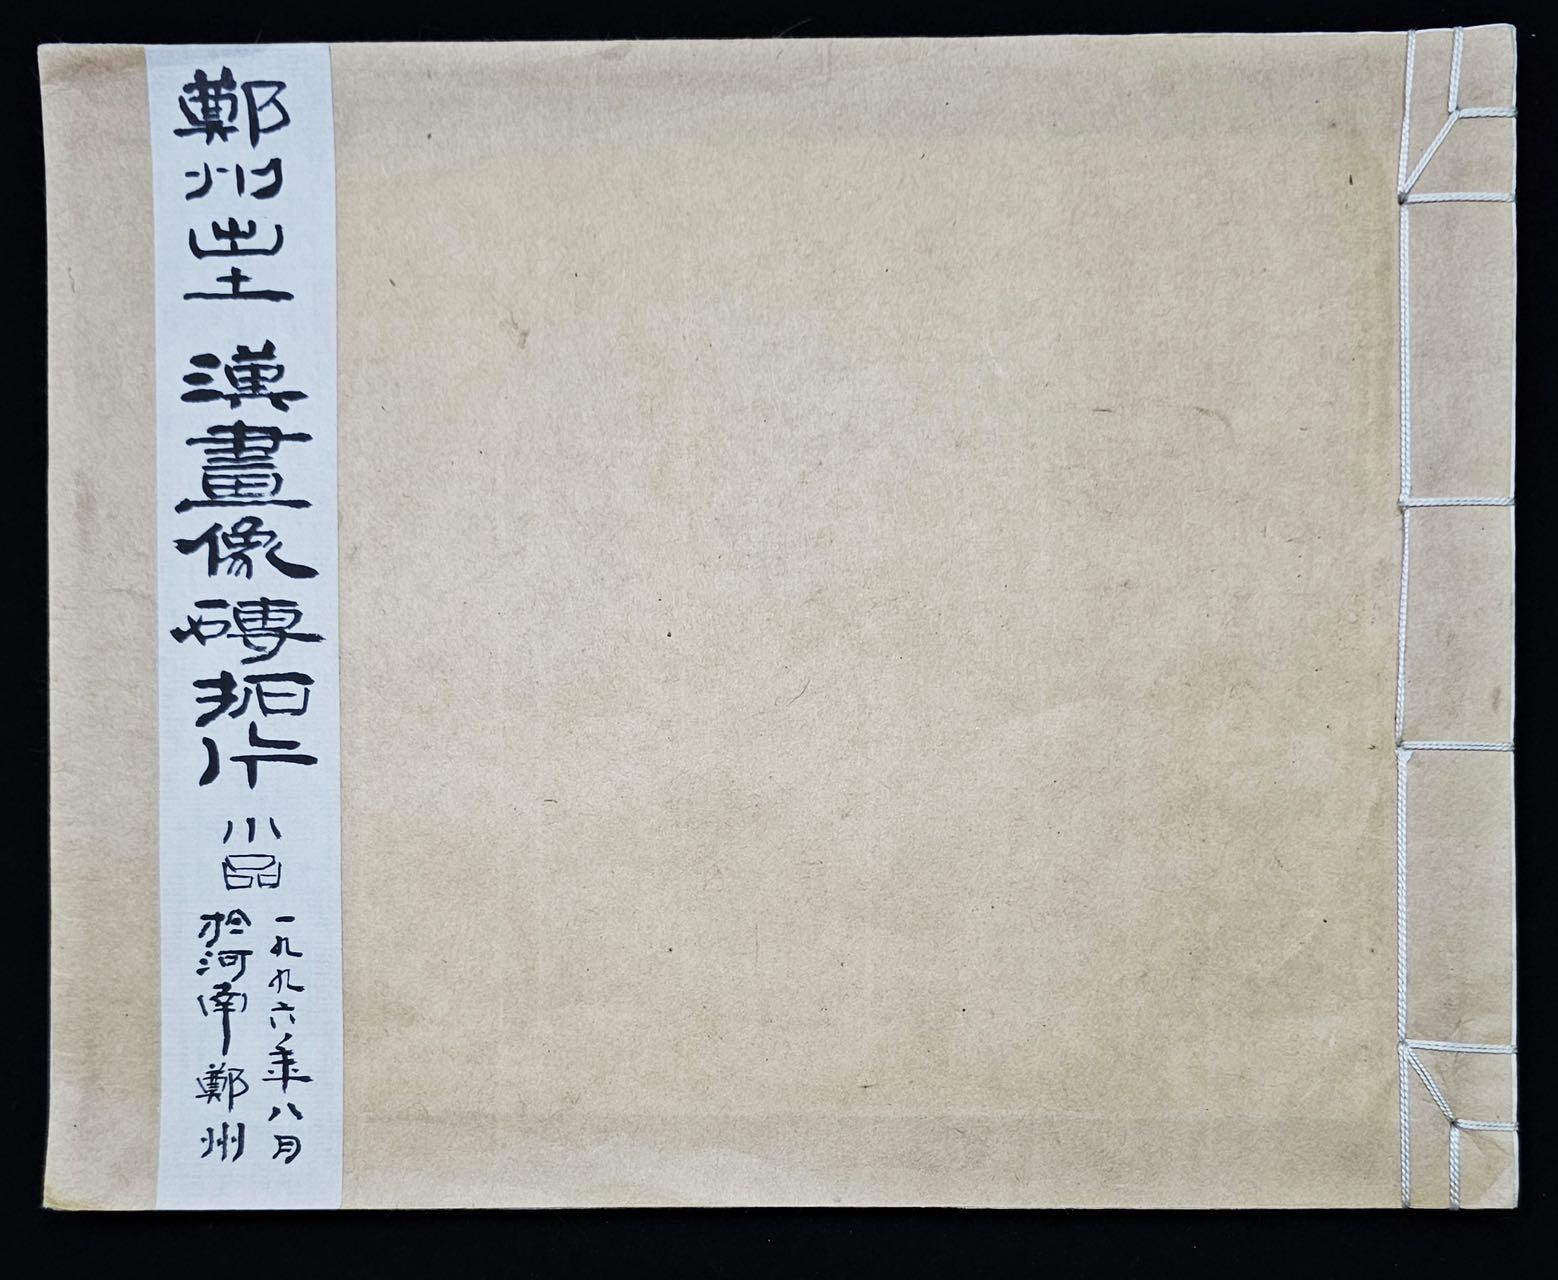 鄭州出土 漢畫像磚拓片 小品
一九九六年八月
於河南鄭州